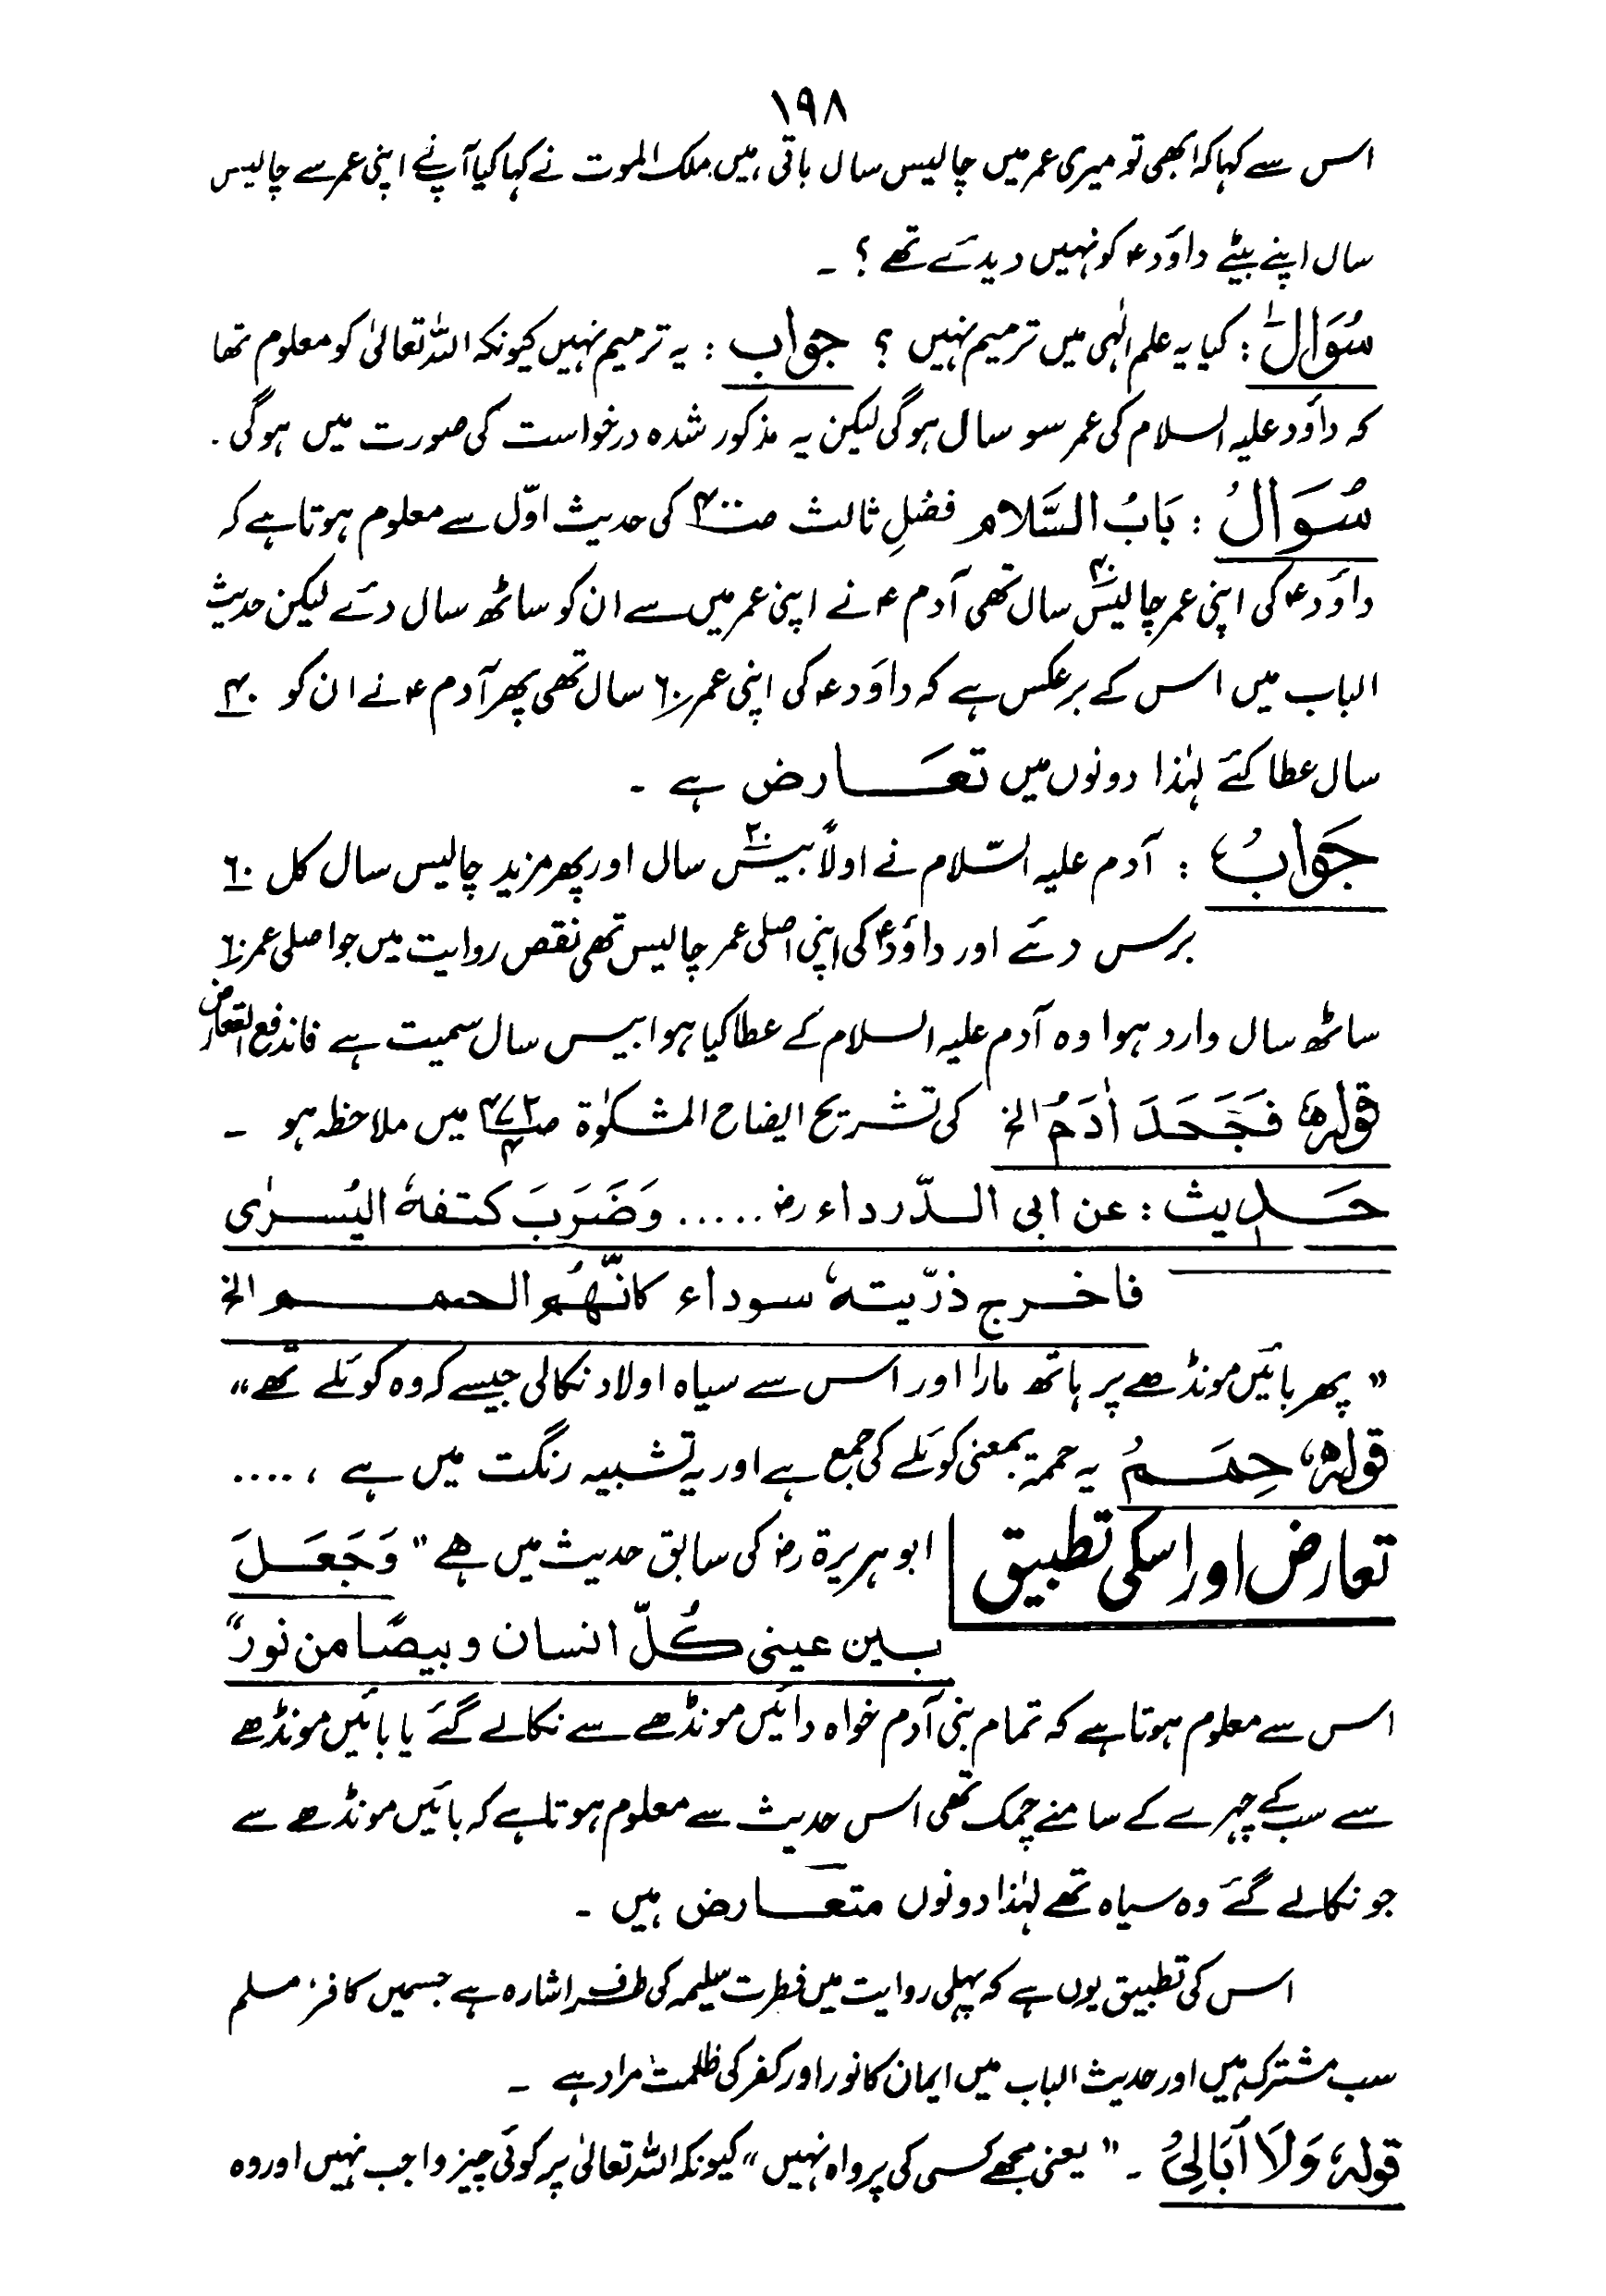 ١٩٨
اس سے کہا کہ ابھی تو میری عمر میں چالیس سال باقی ہیں ملک الموت نے کہا کیا آپنے اپنی عمر سے چالیس
سال اپنے بیٹے داؤد؏ کو نہیں دیدئے تھے ؟ ۔
سُوَالٌ : کیا یہ علم الٰہی میں ترمیم نہیں ؟ جواب : یہ ترمیم نہیں کیونکہ اللہ تعالیٰ کو معلوم تھا
کہ داؤد علیہ السلام کی عمر سو سال ہوگی لیکن یہ مذکور شدہ درخواست کی صورت میں ہوگی ۔
سُوَالُ : بَابُ السَّلام فضلِ ثالث صـ۴۰۰ کی حدیث اوّل سے معلوم ہوتا ہے کہ
داؤد؏ کی اپنی عمر چالیس۴۰ سال تھی آدم ؏ نے اپنی عمر میں سے ان کو ساٹھ سال دئے لیکن حدیث
الباب میں اس کے برعکس ہے کہ داؤد ؏ کی اپنی عمر ٦٠ سال تھی پھر آدم ؏ نے ان کو ۴۰
سال عطا کئے لہٰذا دونوں میں تعَارض ہے ۔
جَوَابُ : آدم علیہ السّلام نے اولاً بیس۲۰ سال اور پھر مزید چالیس سال کل ٦٠
برس دئے اور داؤد؏ کی اپنی اصلی عمر چالیس تھی نقص روایت میں جو اصلی عمر ٦٠
ساٹھ سال وارد ہوا وہ آدم علیہ السلام کے عطا کیا ہوا بیس سال سمیت ہے فاندفع التعارض
قولہٗ فَجَحَدَ اٰدَمُ الخ کی تشریح ایضاح المشکوٰة میں ملاحظہ ہو ۔
حَدیث : عن ابی الدّرداء رض ..... وَضَرَبَ کتفہٗ الیُسرٰی
فاخرج ذرّیتہٗ سوداء کانّھُم الحمم الخ
” پھر بائیں مونڈھے پر ہاتھ مارا اور اس سے سیاہ اولاد نکالی جیسے کہ وہ کوئلے تھے “
قولہٗ حِمَمُ یہ حممۃ بمعنی کوئلے کی جمع ہے اور یہ تشبیہ رنگت میں ہے ، ....
تعارض اور اسکی تطبیق ابو ہریرۃ رض کی سابق حدیث میں ہے ” وَجَعَلَ
بین عینی کُلّ انسان وبیصًا من نور “
اس سے معلوم ہوتا ہے کہ تمام بنی آدم خواہ دائیں مونڈھے سے نکالے گئے یا بائیں مونڈھے
سے سب کے چہرے کے سامنے چمک تھی اس حدیث سے معلوم ہوتا ہے کہ بائیں مونڈھے سے
جو نکالے گئے وہ سیاہ تھے لہٰذا دونوں متعَارض ہیں ۔
اس کی تطبیق یوں ہے کہ پہلی روایت میں فطرت سلیمہ کی طرف اشارہ ہے جسمیں کافر، مسلم
سب مشترک ہیں اور حدیث الباب میں ایمان کا نور اور کفر کی ظلمت مراد ہے ۔
قولہٗ وَلَا اُبَالِیُ ۔ ” یعنی مجھے کسی کی پرواہ نہیں “ کیونکہ اللہ تعالیٰ پر کوئی چیز واجب نہیں اور وہ